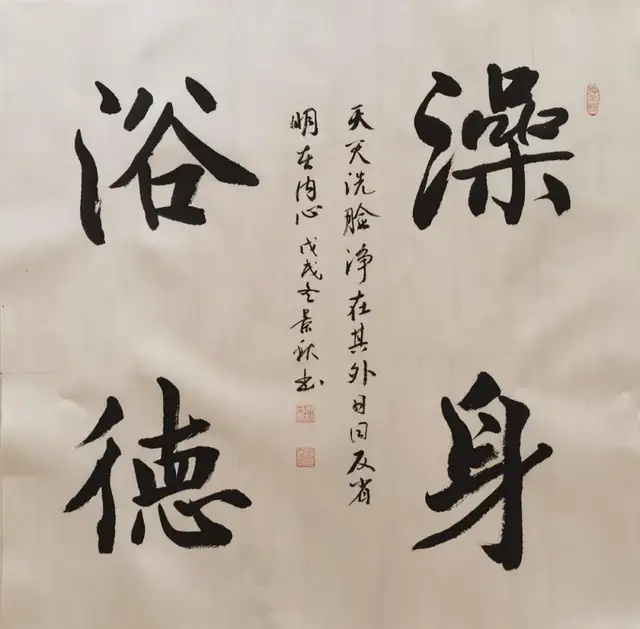 澡身
浴德
天天洗脸净在其外日日反省
明在内心戊戌冬景秋书